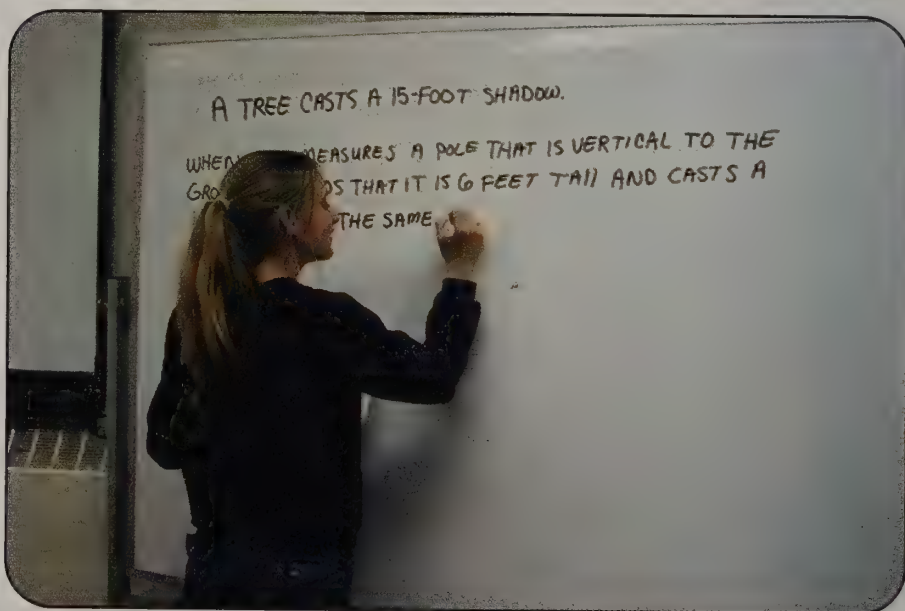 A TREE CASTS A 15-FOOT SHADOW.
WHEN MEASURES A POLE THAT IS VERTICAL TO THE
GRO DS THAT IT IS 6 FEET TAll AND CASTS A
THE SAME